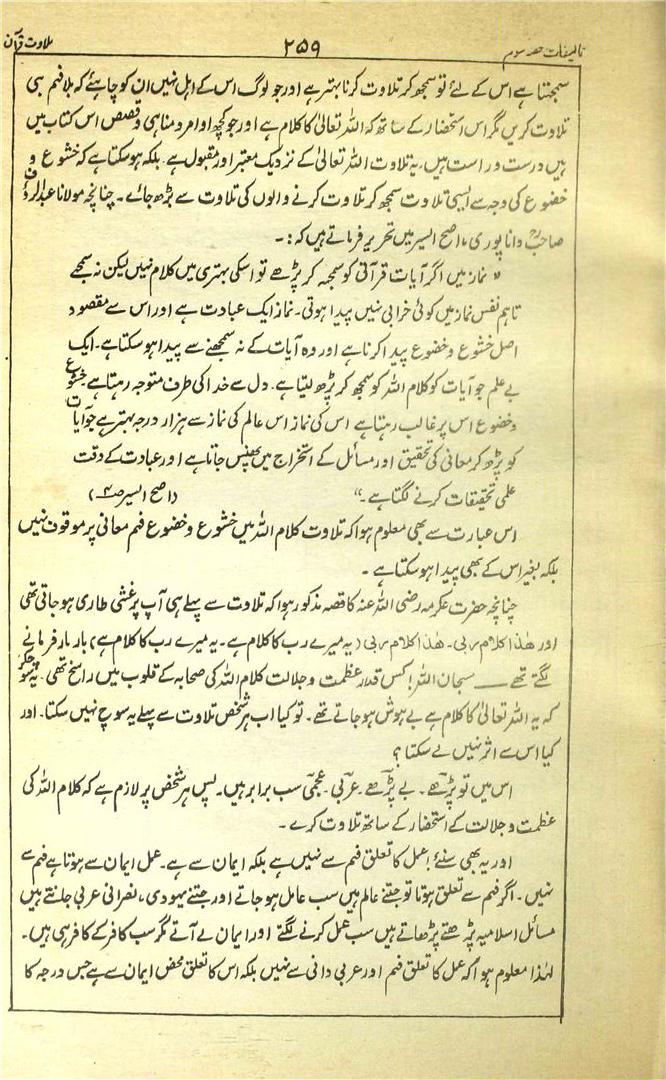 تالیفات حصہ سوم ۲۵۹ تلاوت قرآن
سمجھتا ہے اس کے لئے تو سمجھ کر تلاوت کرنا بہتر ہے اور جو لوگ اس کے اہل نہیں ان کو چاہئے کہ بلا فہم ہی
تلاوت کریں مگر اس استحضار کے ساتھ کہ اللہ تعالیٰ کا کلام ہے اور جو کچھ اوامر و مناہی و قصص اس کتاب میں
ہیں درست و راست ہیں، یہ تلاوت اللہ تعالیٰ کے نزدیک معتبر اور مقبول ہے۔ بلکہ ہو سکتا ہے کہ خشوع و
خضوع کی وجہ سے ایسی تلاوت سمجھ کر تلاوت کرنے والوں کی تلاوت سے بڑھ جائے۔ چنانچہ مولانا عبدالرؤف
صاحبؒ دانا پوری، اصح السیر میں تحریر فرماتے ہیں کہ:۔
" نماز میں اگر آیات قرآنی کو سمجھ کر پڑھے تو اسکی بہتری میں کلام نہیں لیکن نہ سمجھے
تاہم نفس نماز میں کوئی خرابی نہیں پیدا ہوتی۔ نماز ایک عبادت ہے اور اس سے مقصود
اصل خشوع و خضوع پیدا کرنا ہے اور وہ آیات کے نہ سمجھنے سے پیدا ہو سکتا ہے۔ ایک
بے علم جو آیات کو کلام اللہ کو سمجھ کر پڑھ لیتا ہے۔ دل سے خدا کی طرف متوجہ رہتا ہے خشوع
و خضوع اس پر غالب رہتا ہے اس کی نماز اس عالم کی نماز سے ہزار درجہ بہتر ہے جو آیات
کو پڑھ کر معانی کی تحقیق اور مسائل کے استخراج میں پھنس جاتا ہے اور عبادت کے وقت
علمی تحقیقات کرنے لگتا ہے۔" (اصح السیر صـ۴)
اس عبارت سے بھی معلوم ہوا کہ تلاوت کلام اللہ میں خشوع و خضوع فہم معانی پر موقوف نہیں
بلکہ بغیر اس کے بھی پیدا ہو سکتا ہے۔
چنانچہ حضرت عکرمہ رضی اللہ عنہ کا قصہ مذکور ہوا کہ تلاوت سے پہلے ہی آپ پر غشی طاری ہو جاتی تھی
اور ھٰذا کلام ربی۔ ھٰذا کلام ربی (یہ میرے رب کا کلام ہے۔ یہ میرے رب کا کلام ہے) بار بار فرمانے
لگتے تھے ــــ سبحان اللہ! کس قدر عظمت و جلالت کلام اللہ کی صحابہ کے قلوب میں راسخ تھی۔ یہ سوچکر
کہ یہ اللہ تعالیٰ کا کلام ہے بے ہوش ہو جاتے تھے۔ تو کیا اب ہر شخص تلاوت سے پہلے یہ سوچ نہیں سکتا۔ اور
کیا اس سے اثر نہیں لے سکتا؟
اس میں تو پڑھے۔ بے پڑھے۔ عربی۔ عجمی سب برابر ہیں۔ پس ہر شخص پر لازم ہے کہ کلام اللہ کی
عظمت و جلالت کے استحضار کے ساتھ تلاوت کرے۔
اور یہ بھی سنئے! عمل کا تعلق فہم سے نہیں ہے بلکہ ایمان سے ہے۔ عمل ایمان سے ہوتا ہے فہم سے
نہیں۔ اگر فہم سے تعلق ہوتا تو جتنے عالم ہیں سب عامل ہو جاتے اور جتنے یہودی، نصرانی عربی جانتے ہیں
مسائل اسلامیہ پڑھتے پڑھاتے ہیں سب عمل کرنے لگتے اور ایمان لے آتے مگر سب کافر کے کافر ہی ہیں۔
لہٰذا معلوم ہوا کہ عمل کا تعلق فہم اور عربی دانی سے نہیں بلکہ اس کا تعلق محض ایمان سے ہے جس درجہ کا